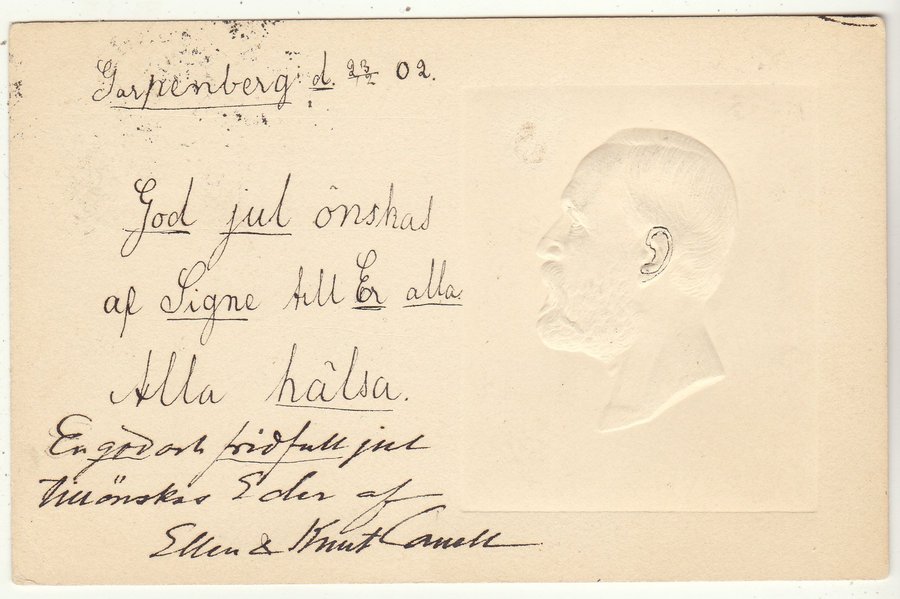 Garpenberg d. 23/12 02.
God jul önskas
af Signe till Er alla.
Alla hälsa.
En god och fridfull jul
tillönskas Eder af
Ellen & Knut